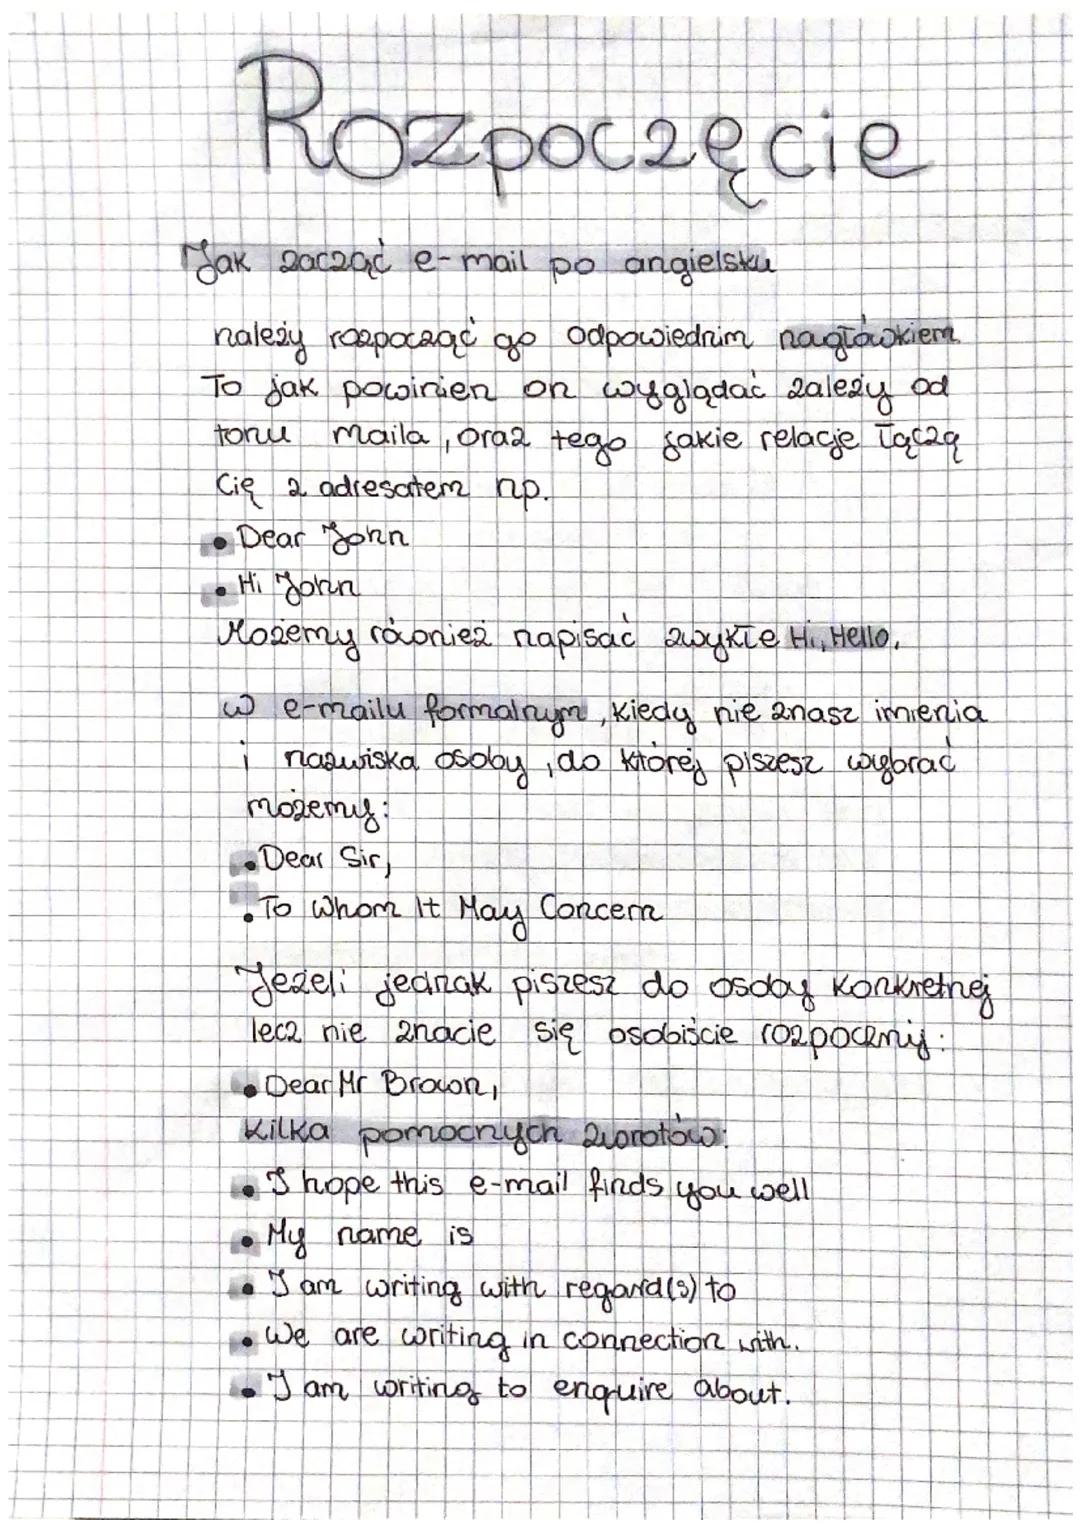 Rozpoczęcie
Jak zacząć e-mail po angielsku
należy rozpocząć go odpowiednim nagłówkiem.
To jak powinien on wyglądać zależy od
tonu maila, oraz tego jakie relacje łączą
Cię z adresatem np.
• Dear John
• Hi John
Możemy również napisać zwykłe Hi, Hello.
W e-mailu formalnym, kiedy nie znasz imienia
i nazwiska osoby, do której piszesz wybrać
możemy:
• Dear Sir,
• To Whom It May Concern
Jeżeli jednak piszesz do osoby konkretnej
lecz nie znacie się osobiście rozpocznij:
• Dear Mr Brown,
Kilka pomocnych zwrotów:
• I hope this e-mail finds you well
• My name is
• I am writing with regard(s) to
• We are writing in connection with.
• I am writing to enquire about.